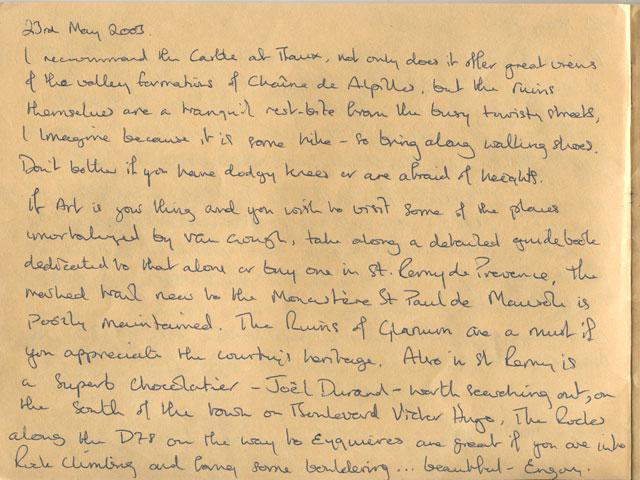 23rd May 2003.
I recommend the Castle at Baux, not only does it offer great views
of the valley formations of Chaîne de Alpilles, but the ruins
themselves are a tranquil rest-bite from the busy touristy streets,
I Imagine because it is some hike - so bring along walking shoes.
Don't bother if you have dodgy knees or are afraid of heights.
If Art is your thing and you wish to visit some of the places
immortalized by Van Gough, take along a detailed guidebook
dedicated to that alone or buy one in St. Remy de Provence, The
marked trail near to the Monastère St Paul de Mausole is
poorly maintained. The Ruins of Glanum are a must if
you appreciate the country's heritage. Also in St Remy is
a superb chocolatier - Joël Durand - worth searching out, on
the South of the town on Boulevard Victor Hugo, The Rocks
along the D78 on the way to Eyguières are great if you are into
Rock Climbing and some bouldering... beautiful - Enjoy.